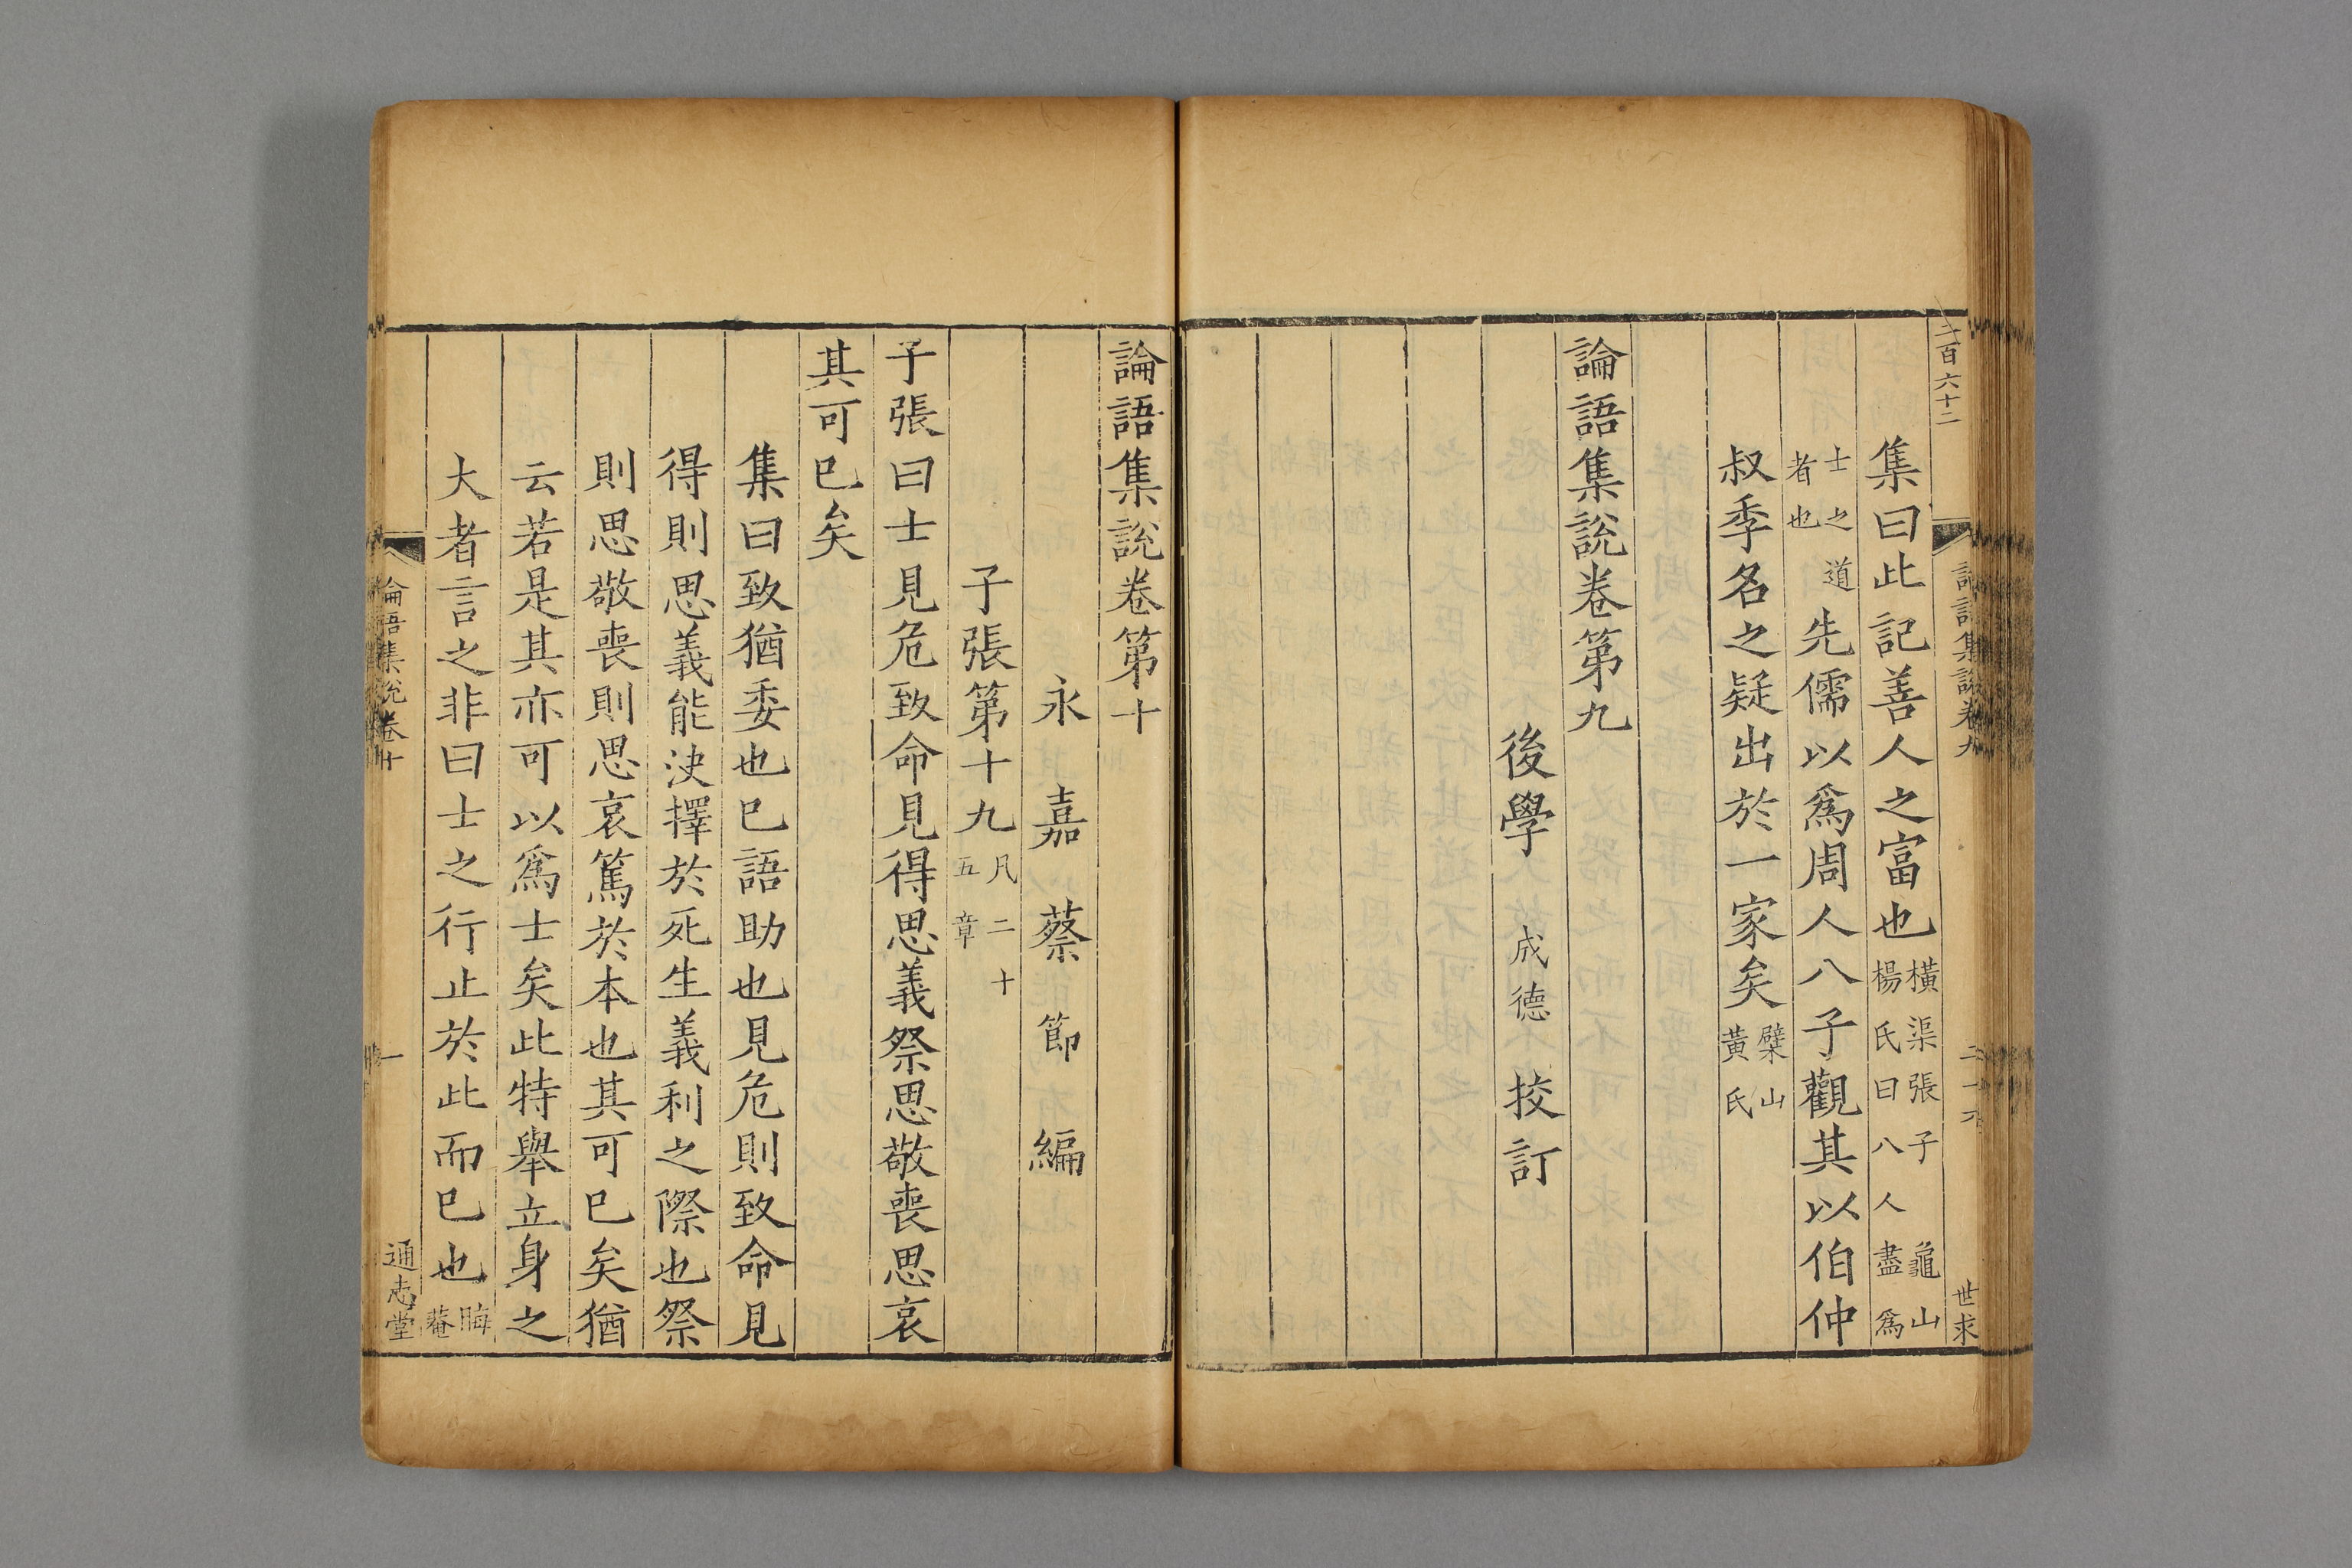 二百六十二
世求
集曰此記善人之富也橫渠張子龜山楊氏曰八人盡爲
士之道者也先儒以爲周人八子觀其以伯仲
叔季名之疑出於一家矣檗山黃氏
論語集說卷第九
後學成德挍訂
論語集說卷第十
永嘉蔡節編
子張第十九凡二十五章
子張曰士見危致命見得思義祭思敬喪思哀
其可已矣
集曰致猶委也已語助也見危則致命見
得則思義能決擇於死生義利之際也祭
則思敬喪則思哀篤於本也其可已矣猶
云若是其亦可以爲士矣此特舉立身之
大者言之非曰士之行止於此而已也晦菴
論語集說卷十
一
通志堂